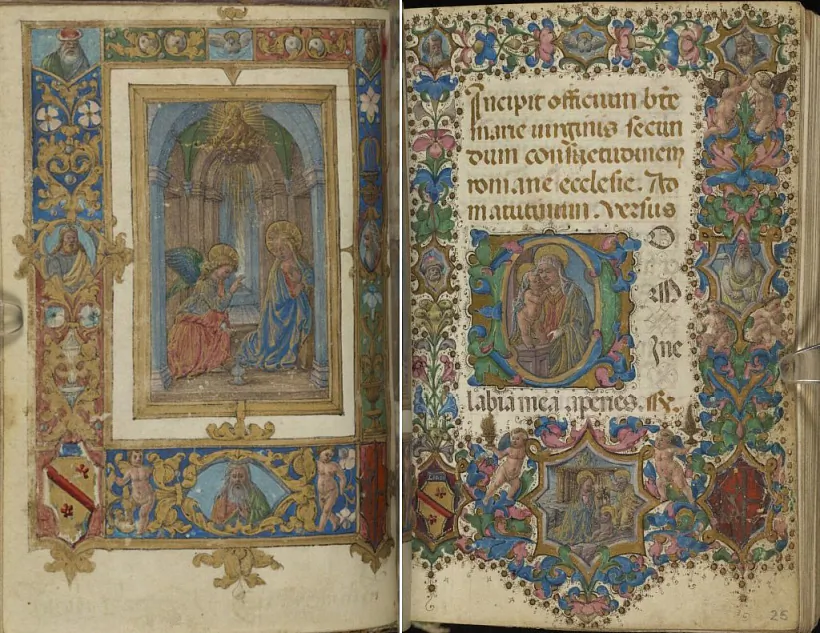 Incipit officium bte
marie uirginis secun
dum consuetudinem
romane ecclesie. Ad
matutinum. Versus
D
ne
labia mea aperies. R
25